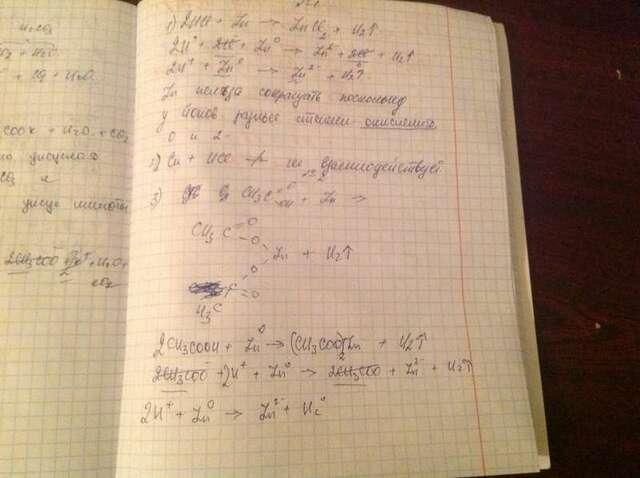 H₂CO₃
1) 2HCl + Zn → ZnCl₂ + H₂↑
2H⁺ + 2Cl⁻ + Zn⁰ → Zn²⁻ + 2Cl⁻ + H₂↑
2H⁺ + Zn⁰ → Zn²⁻ + H₂⁰↑
Zn нельзя сокращать поскольку
у ионов разные степени окисления
0 и 2-
2) Cu + HCl ↛ не взаимодействует
3) 2 CH₃C =O -OH + Zn →
CH₃ C =O
O
Zn + H₂↑
O
C = O
H₃C
2CH₃COOH + Zn⁰ → (CH₃COO)₂Zn + H₂↑
2CH₃COO⁻ + 2H⁺ + Zn⁰ → 2CH₃COO⁻ + Zn²⁻ + H₂⁰↑
2H⁺ + Zn⁰ → Zn²⁻ + H₂⁰
COOK + H₂O + CO₂